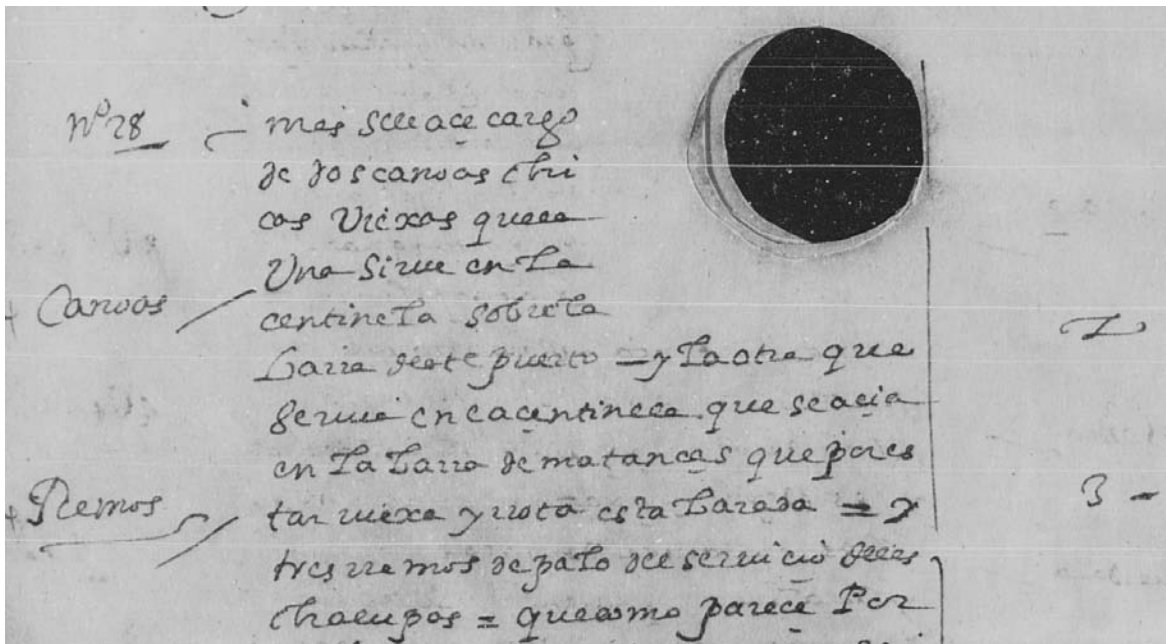 nº 28 – mas sele açe cargo
de dos canoas chi
cas Viexas quela
Una Sirue en La
Canoas / centinela sobre la
barra deste puerto = y La otra que 2
seruia en la centinela que se acia
en La barra de matancas que por es
Remos / tar uiexa y rrota esta barada = y 3 -
tres rremos de palo del seruicio delas
chalupas = que como parece Por